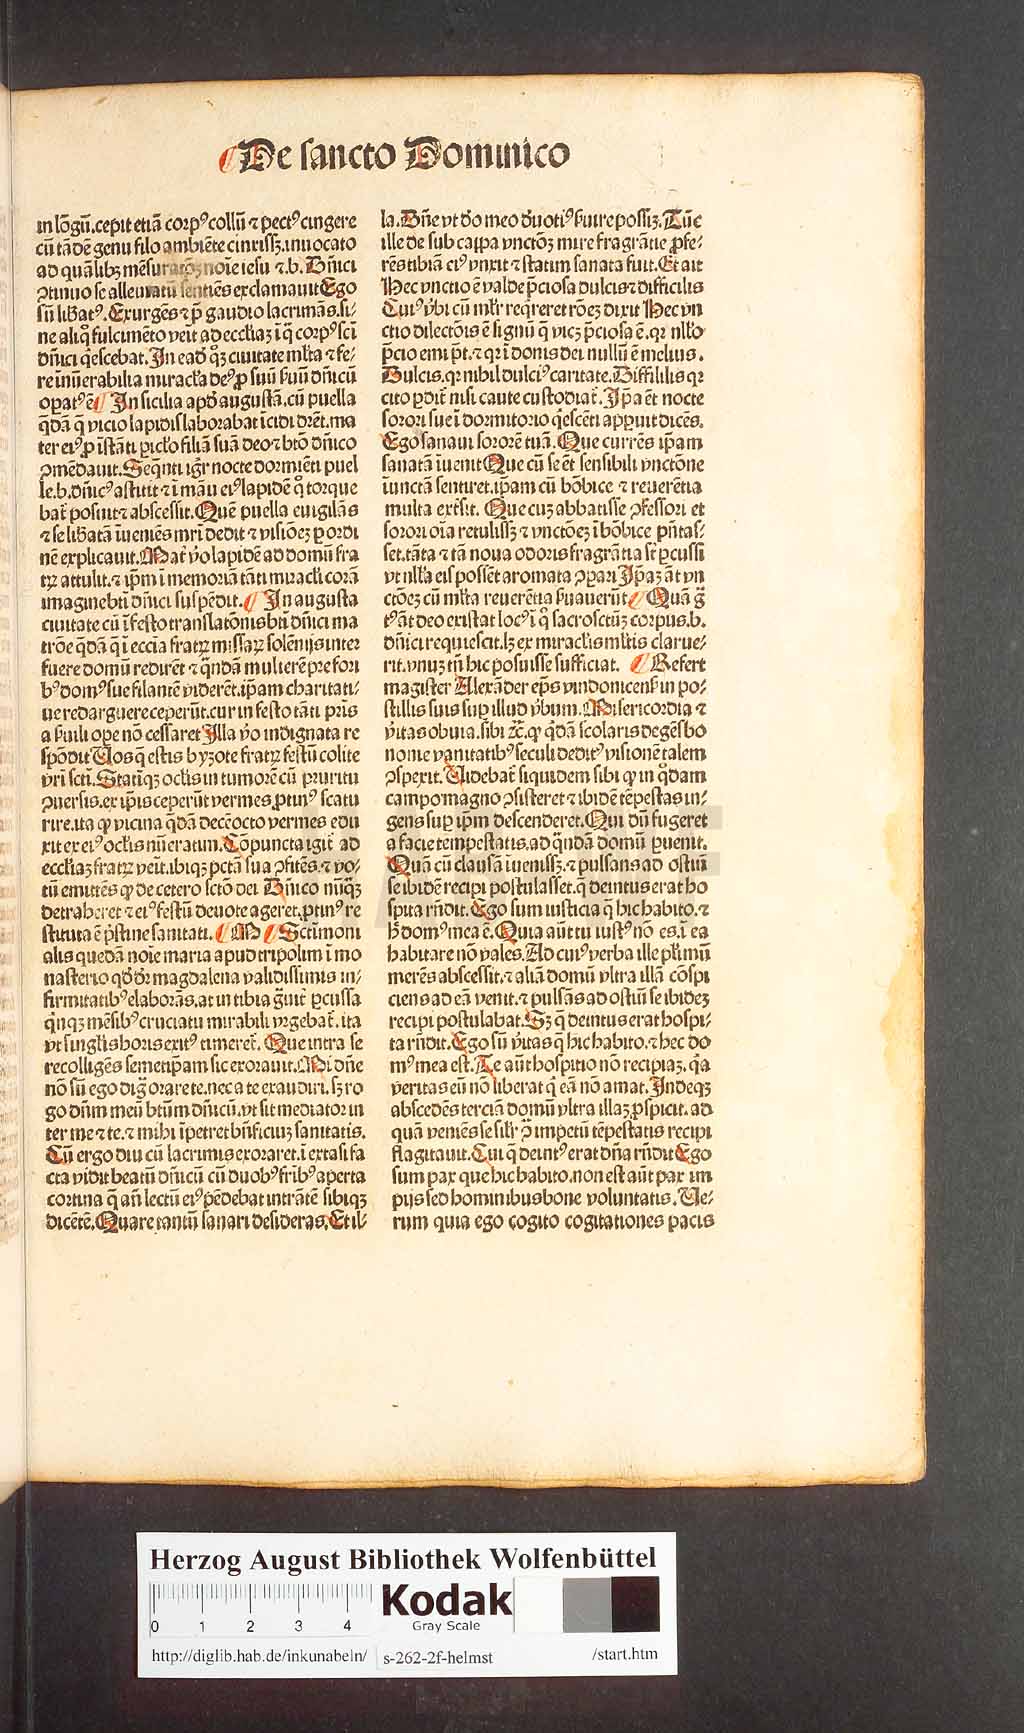 De sancto Dominico
in lōgū.cepit etiā corpꝰ collū ⁊ pectꝰ cingere
cū tādē genu filo ambiēte cinxissꝫ.inuocato
ad quālibꝫ mēsuratōꝫ noīe iesu ⁊.b. Dn̄ici
ꝯtinuo se alleuiatū sentiēs exclamauit Ego
sū lib̄atꝰ. Exurgēs ⁊ p̄ gaudio lacrimās.si⸗
ne aliqͦ fulcimēto veit ad eccliaꝫ ī q̄ corpꝰ sc̄i
dn̄ici q̇escebat. In eadē qͦꝫ ciuitate ml̄ta ⁊ fe⸗
re īnūerabilia miracl̄a deꝰ ꝑ suū ẜuū dn̄icū
opatꝰ ē In sicilia apd̄ augustā.cū puella
q̄dā q̄ vicio lapidis laborabat īcidi dr̄et.ma
ter eiꝰ ꝓ īstāti picl̄o filiā suā deo ⁊ bt̄o dn̄ico
ꝯmēdauit. Seq̄nti igr̄ nocte dormiēti puel
le.b.dn̄icꝰ astitit ⁊ ī māu eiꝰ lapidē qͦ torque
bat̄ posuit ⁊ abscessit. Quē puella euigilās
⁊ se lib̄atā īueniēs mr̄i dedit ⁊ visiōeꝫ ꝑ ordi
nē explicauit. Mat̄ v̄o lapidē ad domū fra
trꝫ attulit.⁊ ip̄m ī memoriā tāti miracl̄i corā
imagine bt̄i dn̄ici suspēdit. In augusta
ciuitate cū ī festo translatōnis bt̄i dn̄ici ma
trōe q̄dā q̄ ī ecc̄ia fratrꝫ missarꝫ solēnijs inter
fuere domū redirēt ⁊ q̄ndā mulierē pre fori
bꝰ domꝰ sue filantē viderēt.ip̄am charitati⸗
ue redarguere ceperūt.cur in festo tāti pr̄is
a ẜuili ope nō cessaret Illa v̄o indignata re
spōdit Uos q̄ estis byzote fratrꝫ festū colite
vr̄i sc̄ti. Statīqꝫ ocl̄is in tumorē cū pruritu
ꝯuersis.ex ip̄is ceperūt vermes ꝓtinꝰ scatu
rire.ita ꝙ vicina q̄dā decē octo vermes edu
xit ex eiꝰ ocl̄is nūeratim. Cōpuncta igit̄ ad
eccliaꝫ fratrꝫ veit.ibiqꝫ pctā sua ꝯfitēs ⁊ vo⸗
tū emittēs ꝙ de cetero sctō dei Dn̄ico nūqͣꝫ
detraheret ⁊ eiꝰ festū deuote ageret.ptinꝰ re
stituta ē pͥstine sanitati. M Sctimoni
alis quedā noīe maria apud tripolim ī mo
nasterio qd̄ dr̄ magdalena validissimis in⸗
firmitatibꝰ elaborās.at in tibia g̈uit̄ ꝑcussa
q̇nqꝫ mēsibꝰ cruciatu mirabili vrgebat̄.ita
vt singlis horis exitꝰ timeret̄. Que intra se
recolligēs semetip̄am sic exorauit. Mi dn̄e
nō sū ego dig̅ orare te.nec a te exaudiri.sꝫ ro
go dn̄m meū bt̄um dn̄icū.vt sit mediator in
ter me ⁊ te.⁊ mihi īpetret bn̄ficiuꝫ sanitatis.
Cū ergo diu cū lacrimis exoraret.ī extasi fa
cta vidit beatū dn̄icū cū duobꝰ fr̄ibꝰ aperta
cortina q̄ an̄ lectū eiꝰ pēdebat intrātē sibiqꝫ
dicētē. Quare tantū sanari desideras. Et il⸗
la. Dn̄e vt do meo d̄uotiꝰ ẜuire possiꝫ. Tūc
ille de sub cappa vnctōꝫ mire fragrātie ꝓfe⸗
rēs tibiā eiꝰ vnxit ⁊ statim sanata fuit. Et ait
Hec vnctio ē valde p̄ciosa dulcis ⁊ difficilis
Cuiꝰ v̄bi cū ml̄r reqͥreret rōeꝫ dixit Hec vn
ctio dilectōis ē signū q̄ viczꝫ p̄ciosa ē.qr nll̄o
p̄cio emi pt̄.⁊ qr ī donis dei nullū ē melius.
Dulcis.qr nihil dulciꝰ caritate. Difficilis qr
cito ꝑdit̄ nisi caute custodiat̄. Ip̄a et nocte
sorori sue ī dormitorio q̇escēti apparuit dicēs.
Ego sanaui sororē tuā. Que currēs ip̄am
sanatā īuenit Que cū se ēt sensibili vnctōne
īunctā sentiret.ip̄am cū bōbice ⁊ reuerētia
multa extsit. Que cuꝫ abbatisse ꝯfessori et
sorori oīa retulissꝫ ⁊ vnctōeꝫ ī bōbice pn̄tas⸗
set.tāta ⁊ tā noua odoris fragrātia sr̄ pcussi
vt nll̄a eis possēt aromata ꝯpari Ip̄aꝫ āt vn
ctōeꝫ cū ml̄ta reuerētia ẜuauerūt Quā g̅
tꝰ āt deo existat locꝰ ī qͦ sacrosctūꝫ corpus.b.
dn̄ici requiescit.lꝫ ex miracl̄is ml̄tis clarue⸗
rit.vnuꝫ tn̄ hic posuisse sufficiat. Refert
magister Alexāder ep̄s vindonicēẜ in po⸗
stillis suis sup illud v̄bum. Misericordia ⁊
v̄itas obuia.sibi ⁊c̄.ꝙ q̇dā scolaris degēs bo
nonie vanitatibꝰ seculi deditꝰ visionē talem
ꝯspexit. Uidebat̄ siquidem sibi ꝙ in qͦdam
campo magno ꝯsisteret ⁊ ibidē tēpestas in⸗
gens sup ip̄m descenderet. Qui dū fugeret
a facie tempestatis.ad q̄ndā domū puenit.
Quā cū clausā īuenissꝫ.⁊ pulsans ad ostiū
se ibidē recipi postulasset.q̄ deintus erat ho
spita rn̄dit. Ego sum iusticia q̄ hic habito.⁊
h̄ domꝰ mea ē. Quia aūt tu iustꝰ nō es.ī ea
habitare nō vales. Ad cuiꝰ verba ille pl̄imū
merēs abscessit.⁊ aliā domū vltra illā cōspi
ciens ad eā venit.⁊ pulsās ad ostiū se ibideꝫ
recipi postulabat. Sꝫ q̄ deintus erat hospi⸗
ta rn̄dit. Ego sū v̄itas q̄ hic habito.⁊ hec do
mꝰ mea est. Te aūt hospitio nō recipiaꝫ.qͣa
veritas eū nō liberat qͥ eā nō amat. Indeqꝫ
abscedēs terciā domū vltra illaꝫ ꝓspicit.ad
quā veniēs se sil̄r ꝓ impetu tēpestatis recipi
flagitauit. Cui q̄ deintꝰ erat dn̄a rn̄dit Ego
sum pax que hic habito.non est aūt pax im
pijs sed hominibus bone voluntatis. Ue⸗
rum quia ego cogito cogitationes pacis
HAB WF
Herzog August Bibliothek Wolfenbüttel
0 1 2 3 4
Kodak
Gray Scale
http://diglib.hab.de/inkunabeln/ s-262-2f-helmst /start.htm